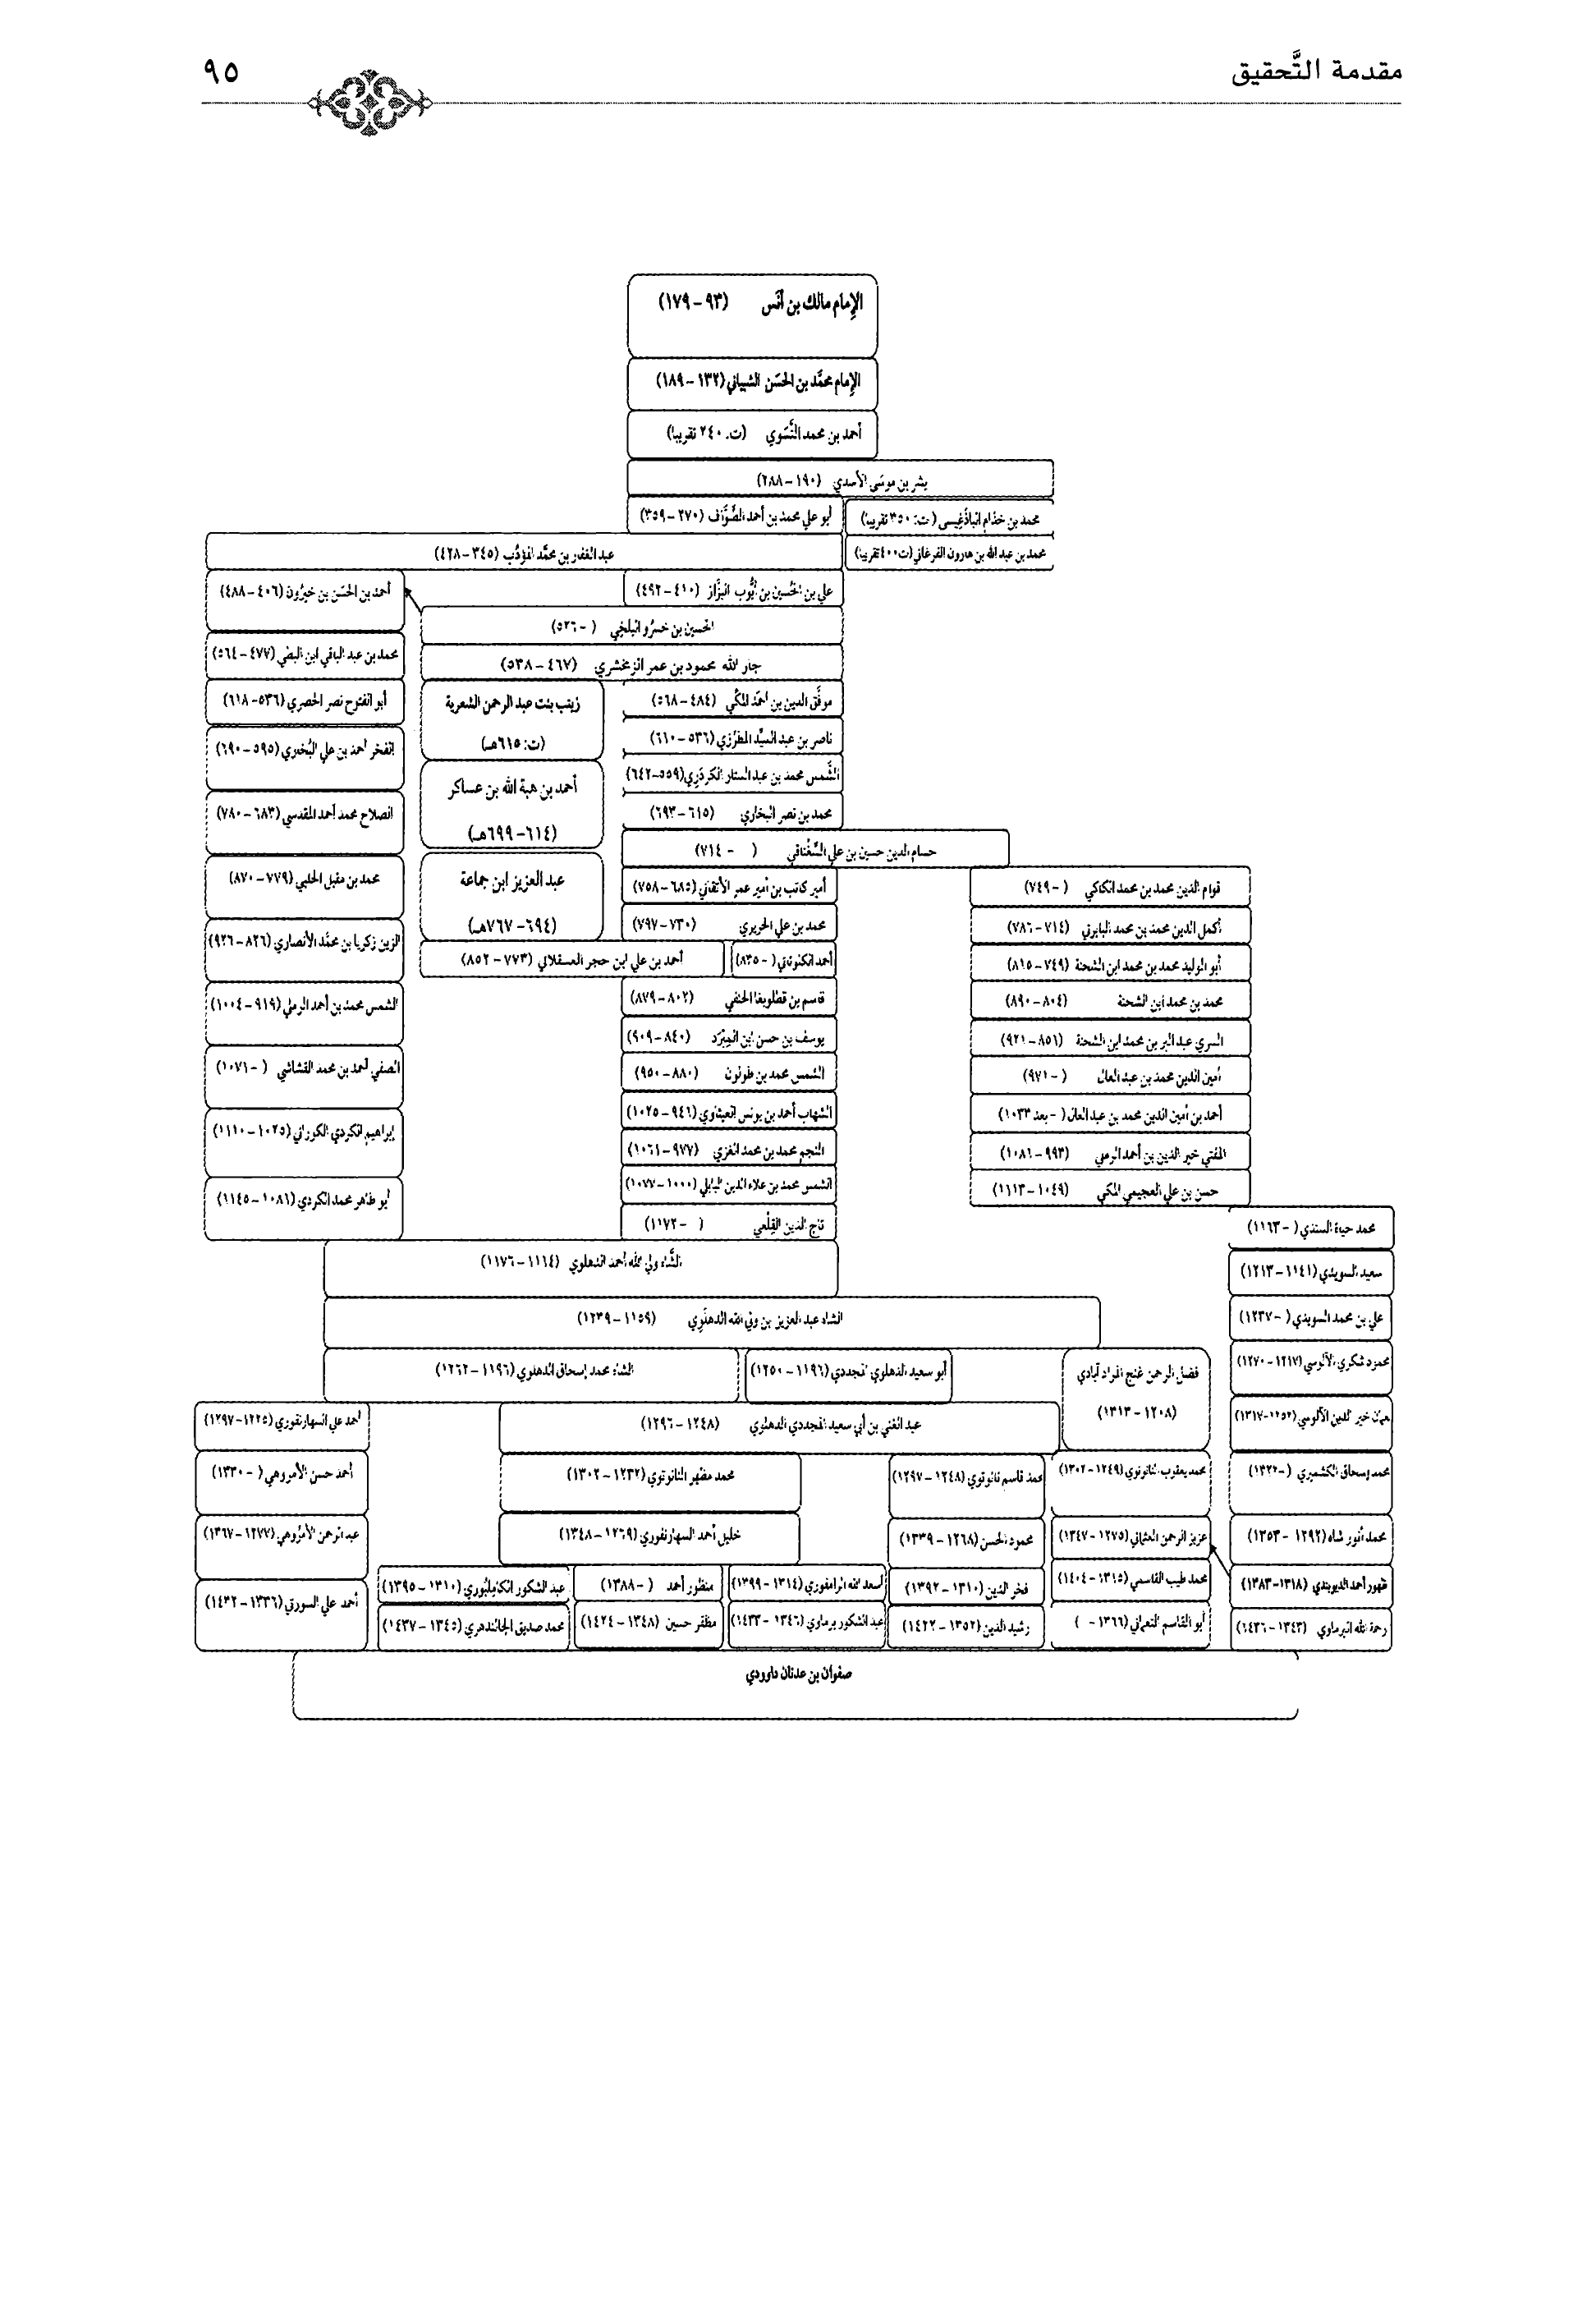 مقدمة التَّحقيق
٩٥
الإمام مالك بن أنَس (٩٣ - ١٧٩)
الإمام محمَّد بن الحسَن الشيباني (١٣٢ - ١٨٩)
أحمد بن محمد النَّسَوي (ت. ٢٤٠ تقريبا)
بشر بن موسَى الأسدي (١٩٠ - ٢٨٨)
محمد بن خذام الباذْغِيسي (ت: ٣٥٠ تقريبا)
أبو علي محمد بن أحمد الصَّوَّاف (٢٧٠ - ٣٥٩)
محمد بن عبد الله بن هارون الفرغاني (ت ٤٠٠ تقريبا)
عبد الغفار بن محمَّد المؤدِّب (٣٤٥ - ٤٢٨)
علي بن الحُسين بن أيُّوب البزَّاز (٤١٠ - ٤٩٢)
أحمد بن الحسَن بن خيرُون (٤٠٦ - ٤٨٨)
الحسين بن خسرُو البلخي ( - ٥٢٦)
محمد بن عبد الباقي ابن البطي (٤٧٧ - ٥٦٤)
جار الله محمود بن عمر الزمخشري (٤٦٧ - ٥٣٨)
موفَّق الدين بن أحمَد المكِّي (٤٨٤ - ٥٦٨)
زينب بنت عبد الرحمن الشعرية
(ت: ٦١٥هـ)
أبو الفتوح نصر الحصري (٥٣٦ - ٦١٨)
ناصر بن عبد السيِّد المطرِّزي (٥٣٦ - ٦١٠)
الفخر أحمد بن علي البُخاري (٥٩٥ - ٦٩٠)
الشَّمس محمد بن عبد الستار الكردَرِي (٥٥٩ - ٦٤٢)
أحمد بن هبة الله بن عساكر
(٦١٤ - ٦٩٩هـ)
محمد بن نصر البخاري (٦١٥ - ٦٩٣)
الصلاح محمد أحمد المقدسي (٦٨٣ - ٧٨٠)
حسام الدين حسين بن علي السِّغْناقي ( - ٧١٤)
قوام الدين محمد بن محمد الكاكي ( - ٧٤٩)
أمير كاتب بن أمير عمر الأتقاني (٦٨٥ - ٧٥٨)
عبد العزيز ابن جماعة
(٦٩٤ - ٧٦٧هـ)
محمد بن مقبل الحلبي (٧٧٩ - ٨٧٠)
أكمل الدين محمد بن محمد البابرتي (٧١٤ - ٧٨٦)
محمد بن علي الحريري (٧٣٠ - ٧٩٧)
أبو الوليد محمد بن محمد ابن الشحنة (٧٤٩ - ٨١٥)
أحمد الكلوتاتي ( - ٨٣٥)
أحمد بن علي ابن حجر العسقلاني (٧٧٣ - ٨٥٢)
الزين زكريا بن محمَّد الأنصاري (٨٢٦ - ٩٢٦)
محمد بن محمد ابن الشحنة (٨٠٤ - ٨٩٠)
قاسم بن قطلوبغا الحنفي (٨٠٢ - ٨٧٩)
الشمس محمد بن أحمد الرملي (٩١٩ - ١٠٠٤)
السري عبد البر بن محمد ابن الشحنة (٨٥١ - ٩٢١)
يوسف بن حسن ابن المِبْرَد (٨٤٠ - ٩٠٩)
أمين الدين محمد بن عبد العال ( - ٩٧١)
الشمس محمد بن طولون (٨٨٠ - ٩٥٠)
الصفي أحمد بن محمد القشاشي ( - ١٠٧١)
أحمد بن أمين الدين محمد بن عبد العال ( - بعد ١٠٣٣)
الشهاب أحمد بن يونس العيثاوي (٩٤٦ - ١٠٢٥)
إبراهيم الكردي الكوراني (١٠٢٥ - ١١١٠)
المفتي خير الدين بن أحمد الرملي (٩٩٣ - ١٠٨١)
النجم محمد بن محمد الغزي (٩٧٧ - ١٠٦١)
حسن بن علي العجيمي المكي (١٠٤٩ - ١١١٣)
الشمس محمد بن علاء الدين البابلي (١٠٠٠ - ١٠٧٧)
أبو طاهر محمد الكردي (١٠٨١ - ١١٤٥)
محمد حياة السندي ( - ١١٦٣)
تاج الدين القلْعي ( - ١١٧٢)
الشَّاه ولي الله أحمد الدهلوي (١١١٤ - ١١٧٦)
سعيد السويدي (١١٤١ - ١٢١٣)
الشاه عبد العزيز بن ولي الله الدهلَوِي (١١٥٩ - ١٢٣٩)
علي بن محمد السويدي ( - ١٢٣٧)
محمود شكري الآلوسي (١٢١٧ - ١٢٧٠)
فضل الرحمن غنج المراد آبادي
(١٢٠٨ - ١٣١٣)
أبو سعيد الدهلوي المجددي (١١٩٦ - ١٢٥٠)
الشاه محمد إسحاق الدهلوي (١١٩٦ - ١٢٦٢)
نعمان خير الدين الآلوسي (١٢٥٢ - ١٣١٧)
عبد الغني بن أبي سعيد المجددي الدهلوي (١٢٤٨ - ١٢٩٦)
أحمد علي السهارنفوري (١٢٢٥ - ١٢٩٧)
محمد إسحاق الكشميري ( - ١٣٢٢)
محمد يعقوب النانوتوي (١٢٤٩ - ١٣٠٢)
محمد قاسم نانوتوي (١٢٤٨ - ١٢٩٧)
محمد مظهر النانوتوي (١٢٣٢ - ١٣٠٢)
أحمد حسن الأمروهي ( - ١٣٣٠)
محمد أنور شاه (١٢٩٢ - ١٣٥٣)
عزيز الرحمن العثماني (١٢٧٥ - ١٣٤٧)
محمود الحسن (١٢٦٨ - ١٣٣٩)
خليل أحمد السهارنفوري (١٢٦٩ - ١٣٤٨)
عبد الرحمن الأمرُوهي (١٢٧٧ - ١٣٦٧)
ظهور أحمد الديوبندي (١٣١٨ - ١٣٨٣)
محمد طيب القاسمي (١٣١٥ - ١٤٠٤)
فخر الدين (١٣١٠ - ١٣٩٢)
أسعد الله الرامفوري (١٣١٤ - ١٣٩٩)
منظور أحمد ( - ١٣٨٨)
عبد الشكور الكامِلبُوري (١٣١٠ - ١٣٩٥)
أحمد علي السورتي (١٣٣٦ - ١٤٣٢)
رحمة الله البرماوي (١٣٤٣ - ١٤٣٦)
أبو القاسم النعماني (١٣٦٦ - )
رشيد الدين (١٣٥٢ - ١٤٢٢)
عبد الشكور برماوي (١٣٤٦ - ١٤٣٣)
مظفر حسين (١٣٤٨ - ١٤٢٤)
محمد صديق الجالندهري (١٣٤٥ - ١٤٣٧)
صفوان بن عدنان داوودي